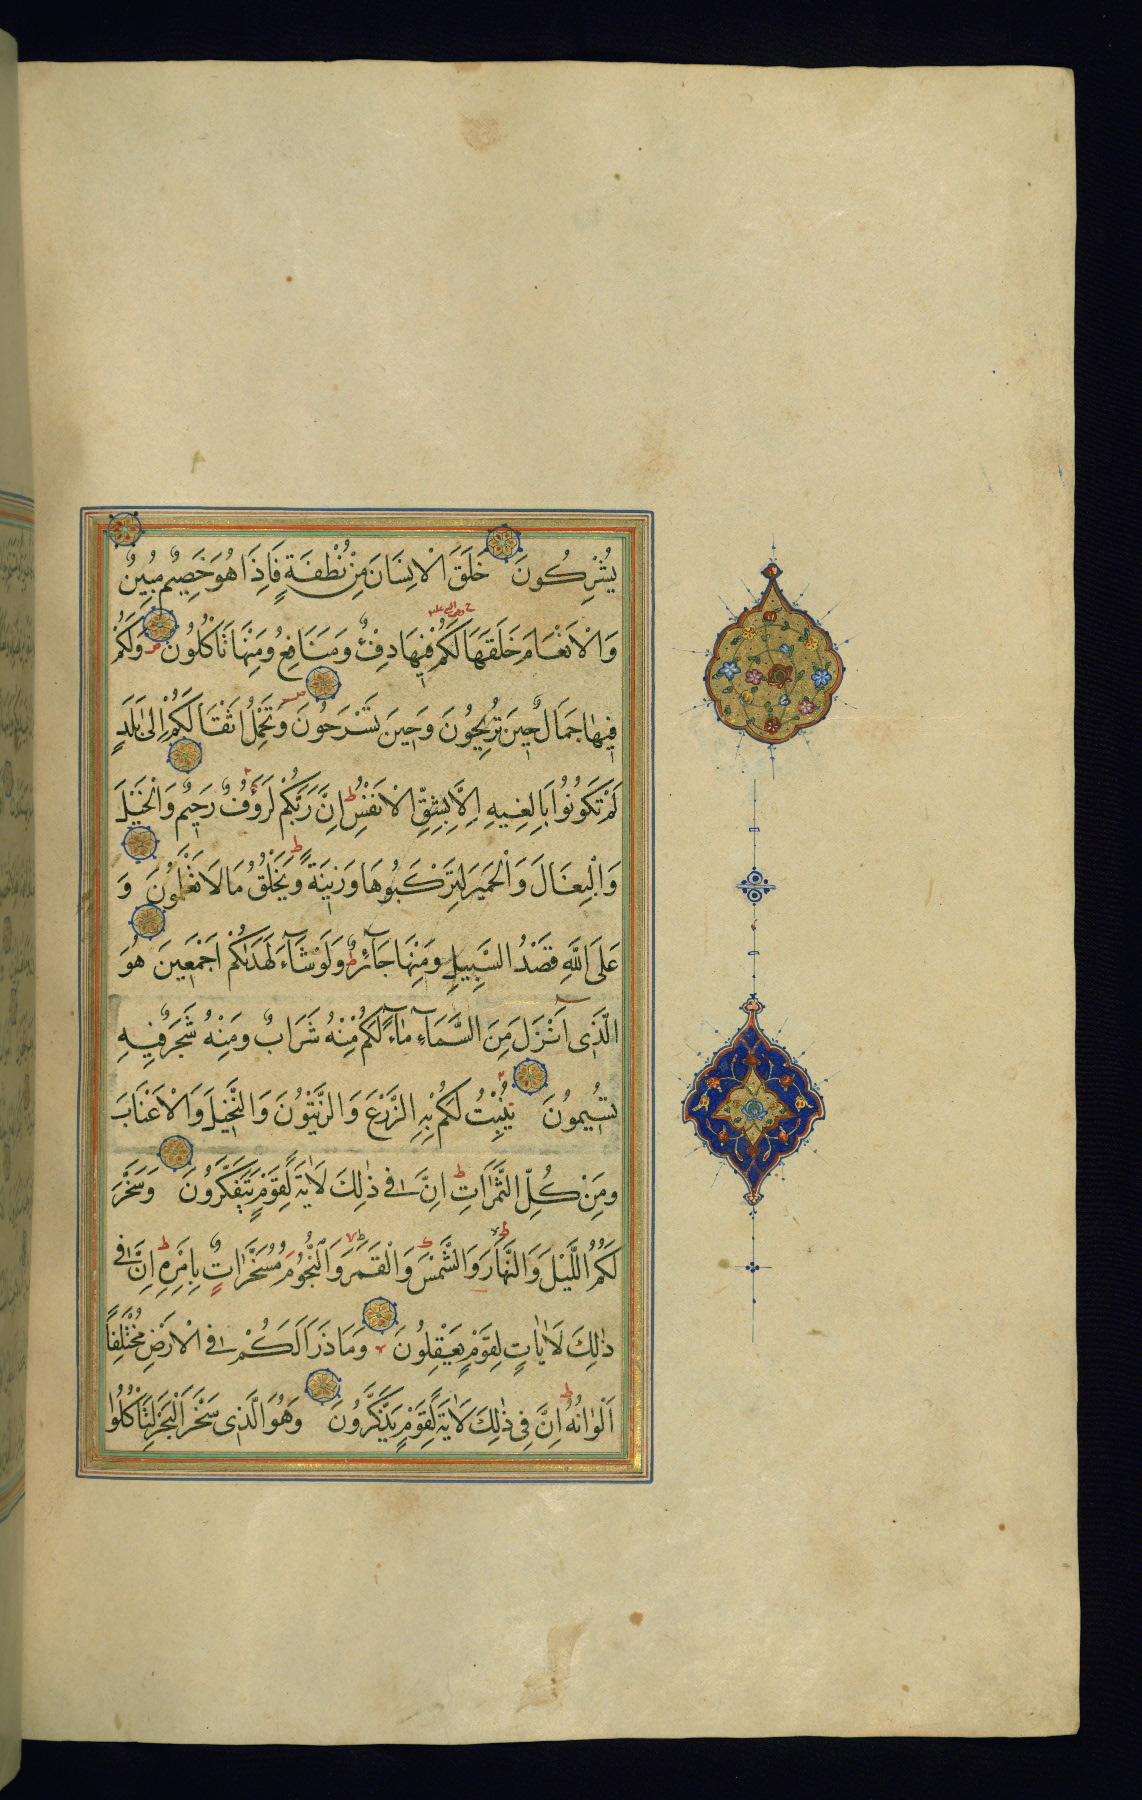 يُشْرِكُونَ خَلَقَ الْاِنْسَانَ مِنْ نُطْفَةٍ فَاِذَا هُوَ خَصِيمٌ مُبِينٌ
وَالْاَنْعَامَ خَلَقَهَا لَكُمْ فِيهَا دِفْءٌ وَمَنَافِعُ وَمِنْهَا تَأْكُلُونَ وَلَكُمْ
فِيهَا جَمَالٌ حِينَ تُرِيحُونَ وَحِينَ تَسْرَحُونَ وَتَحْمِلُ اَثْقَالَكُمْ اِلٰى بَلَدٍ
لَمْ تَكُونُوا بَالِغِيهِ اِلَّا بِشِقِّ الْاَنْفُسِ ط اِنَّ رَبَّكُمْ لَرَؤُفٌ رَحِيمٌ وَالْخَيْلَ
وَالْبِغَالَ وَالْحَمِيرَ لِتَرْكَبُوهَا وَزِينَةً ط وَيَخْلُقُ مَا لَا تَعْلَمُونَ وَ
عَلَى اللّٰهِ قَصْدُ السَّبِيلِ وَمِنْهَا جَآئِرٌ ط وَلَوْ شَآءَ لَهَدٰىكُمْ اَجْمَعِينَ هُوَ
الَّذِى اَنْزَلَ مِنَ السَّمَآءِ مَآءً لَكُمْ مِنْهُ شَرَابٌ وَمِنْهُ شَجَرٌ فِيهِ
تُسِيمُونَ يُنْبِتُ لَكُمْ بِهِ الزَّرْعَ وَالزَّيْتُونَ وَالنَّخِيلَ وَالْاَعْنَابَ
وَمِنْ كُلِّ الثَّمَرَاتِ ط اِنَّ فِى ذٰلِكَ لَاٰيَةً لِقَوْمٍ يَتَفَكَّرُونَ وَسَخَّرَ
لَكُمُ اللَّيْلَ وَالنَّهَارَ وَالشَّمْسَ وَالْقَمَرَ وَالنُّجُومُ مُسَخَّرَاتٌ بِاَمْرِهِ ط اِنَّ فِى
ذٰلِكَ لَاٰيَاتٍ لِقَوْمٍ يَعْقِلُونَ وَمَا ذَرَاَ لَكُمْ فِى الْاَرْضِ مُخْتَلِفًا
اَلْوَانُهُ ط اِنَّ فِى ذٰلِكَ لَاٰيَةً لِقَوْمٍ يَذَّكَّرُونَ وَهُوَ الَّذِى سَخَّرَ الْبَحْرَ لِتَأْكُلُوا